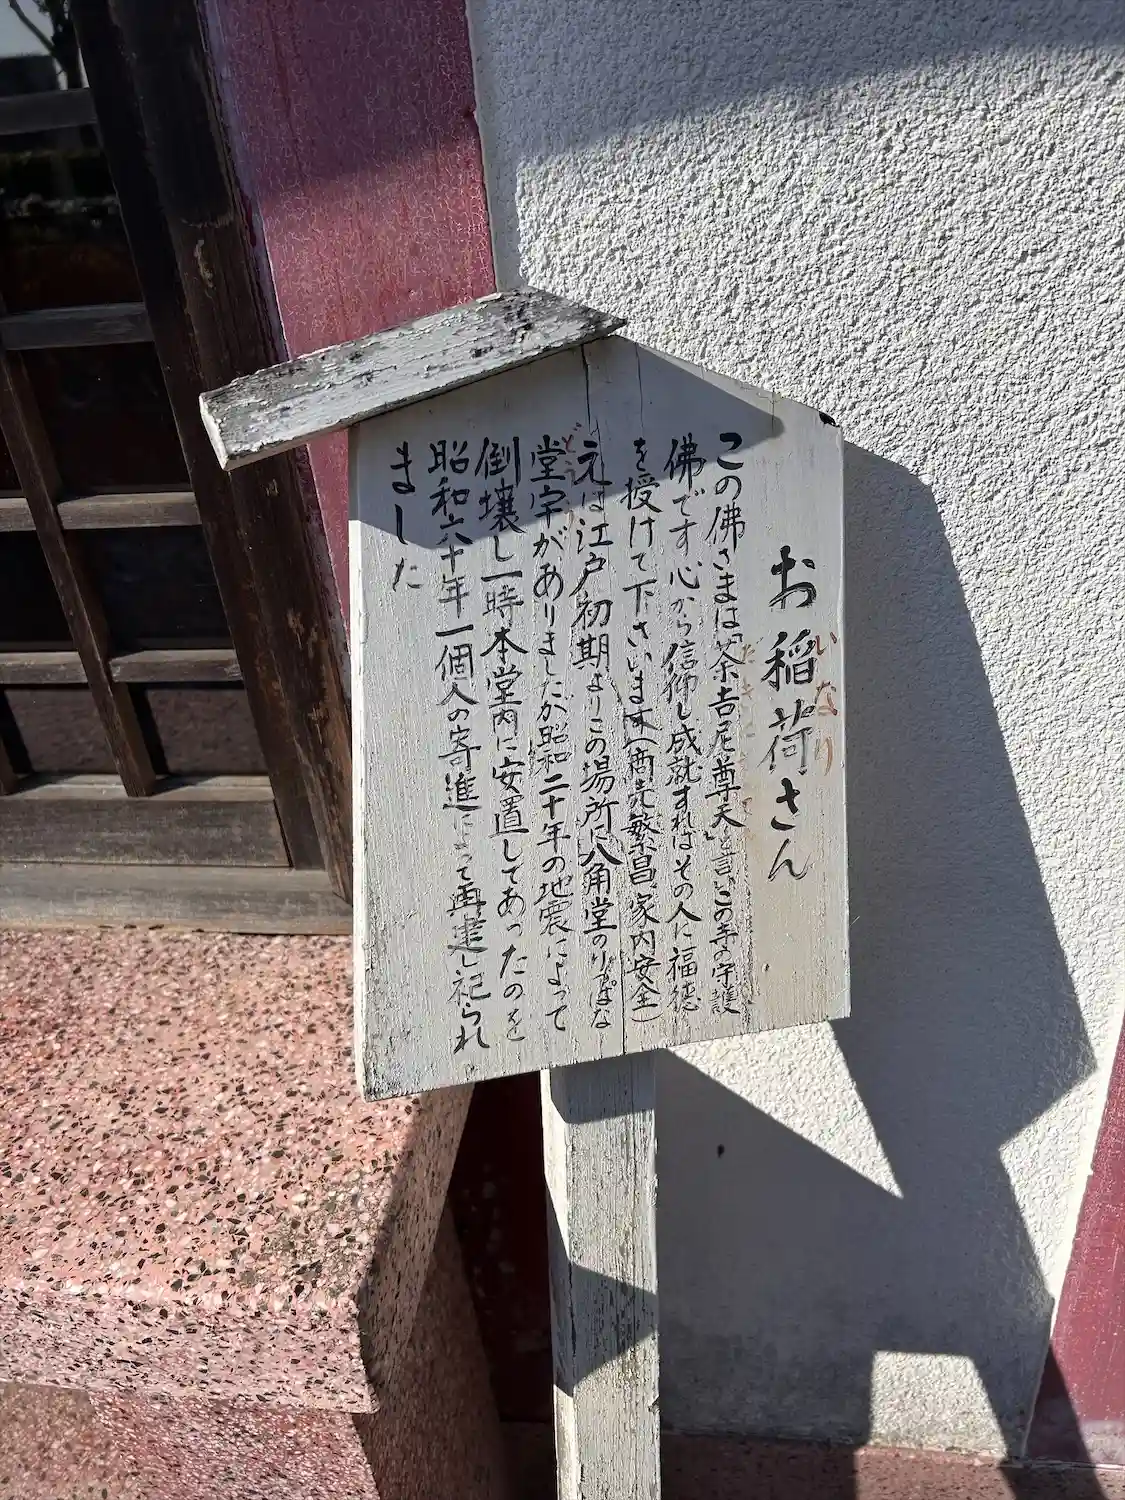 お稲荷さん
いなり
この佛さまは「荼吉尼尊天」と言いこの寺の守護
佛です心から信仰し成就すればその人に福徳
を授けて下さいます(商売繁昌家内安全)
元は江戸初期よりこの場所に八角堂のりっぱな
堂宇がありましたが昭和二十年の地震によって
倒壊し一時本堂内に安置してあったのを
昭和六十年一個人の寄進によって再建し祀られ
ました